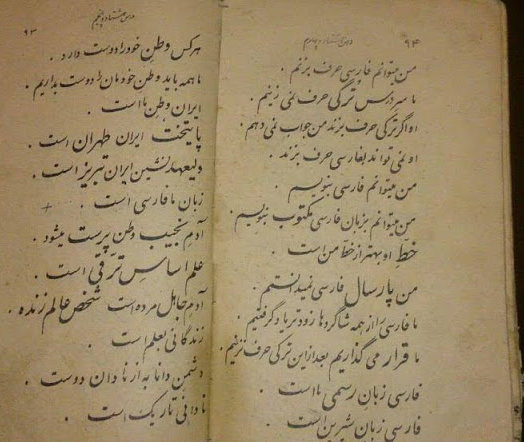 درس هشتاد و چهارم ۹۴
من میتوانم فارسی حرف بزنم .
ما سر درس ترکی حرف نمی زنیم .
او اگر ترکی حرف بزند من جواب نمی دهم .
او نمی تواند بفارسی حرف بزند .
من میتوانم فارسی بنویسم .
من میتوانم بزبان فارسی مکتوب بنویسم .
خط او بهتر از خط من است .
من پارسال فارسی نمیدانستم .
ما فارسی را از همه شاگردها زودتر یاد گرفتیم .
ما قرار می گذاریم بعد از این ترکی حرف نزنیم .
فارسی زبان رسمی ما است .
فارسی زبان شیرین است .
درس هشتاد و پنجم ۹۳
هر کس وطن خود را دوست دارد .
ما همه باید وطن خودمان را دوست بداریم .
ایران وطن ما است .
پایتخت ایران طهران است .
ولیعهد نشین ایران تبریز است .
زبان ما فارسی است .
آدم نجیب وطن پرست میشود .
علم اساس ترقی است .
آدم جاهل مرده است شخص عالم زنده .
زندگانی بعلم است .
دشمن دانا به از نادان دوست .
نادانی تاریک است .